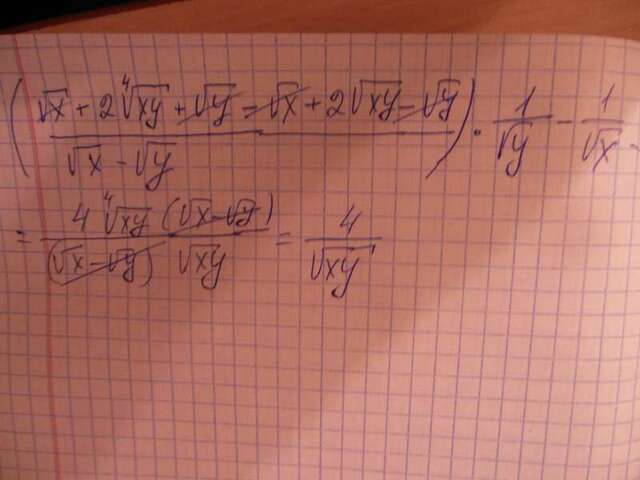 (√x + 2⁴√xy + √y - √x + 2√xy - √y / √x - √y) · 1/√y - 1/√x -
= 4⁴√xy (√x - √y) / (√x - √y) √xy = 4/√xy